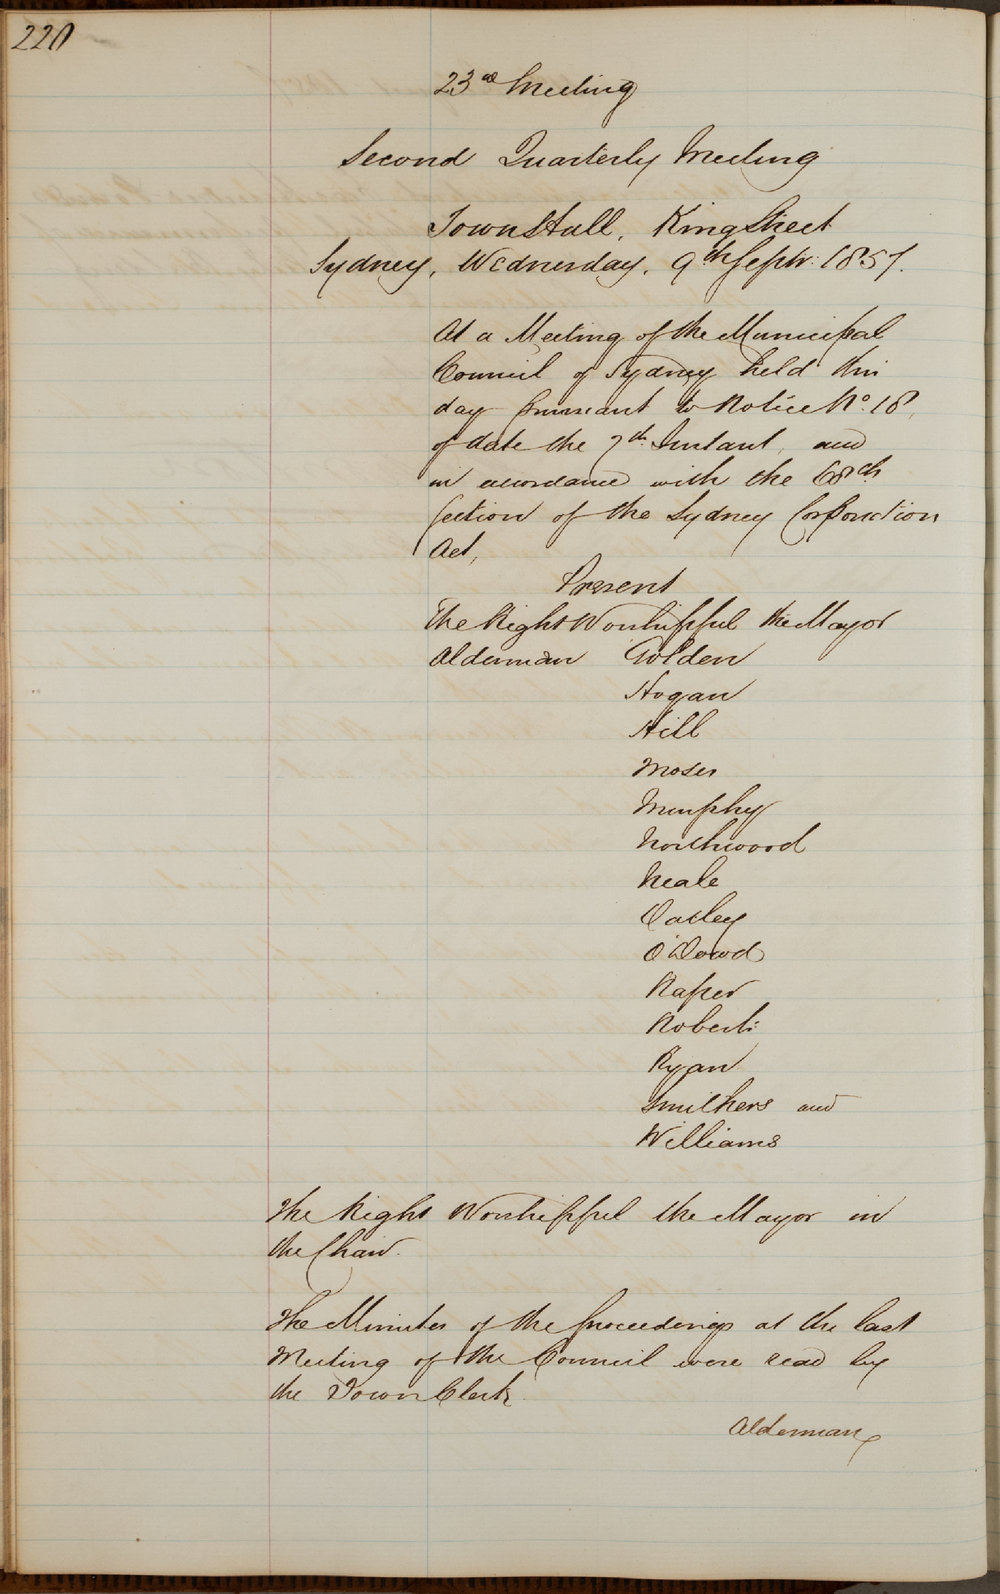 220
23rd Meeting
Second Quarterly Meeting
Town Hall, King Street
Sydney, Wednesday, 9th Septr: 1857.
At a Meeting of the Municipal
Council of Sydney held this
day pursuant to Notice No. 18,
of date the 7th Instant, and
in accordance with the 68th
Section of the Sydney Corporation
Act,
Present
The Right Worshipful the Mayor
Alderman Golden
Hogan
Hill
Moses
Murphy
Northwood
Neale
Oatley
O'Dowd
Raper
Roberts
Ryan
Smithers and
Williams
The Right Worshipful the Mayor in
the Chair.
The Minutes of the proceedings at the last
Meeting of the Council were read by
the Town Clerk.
Alderman